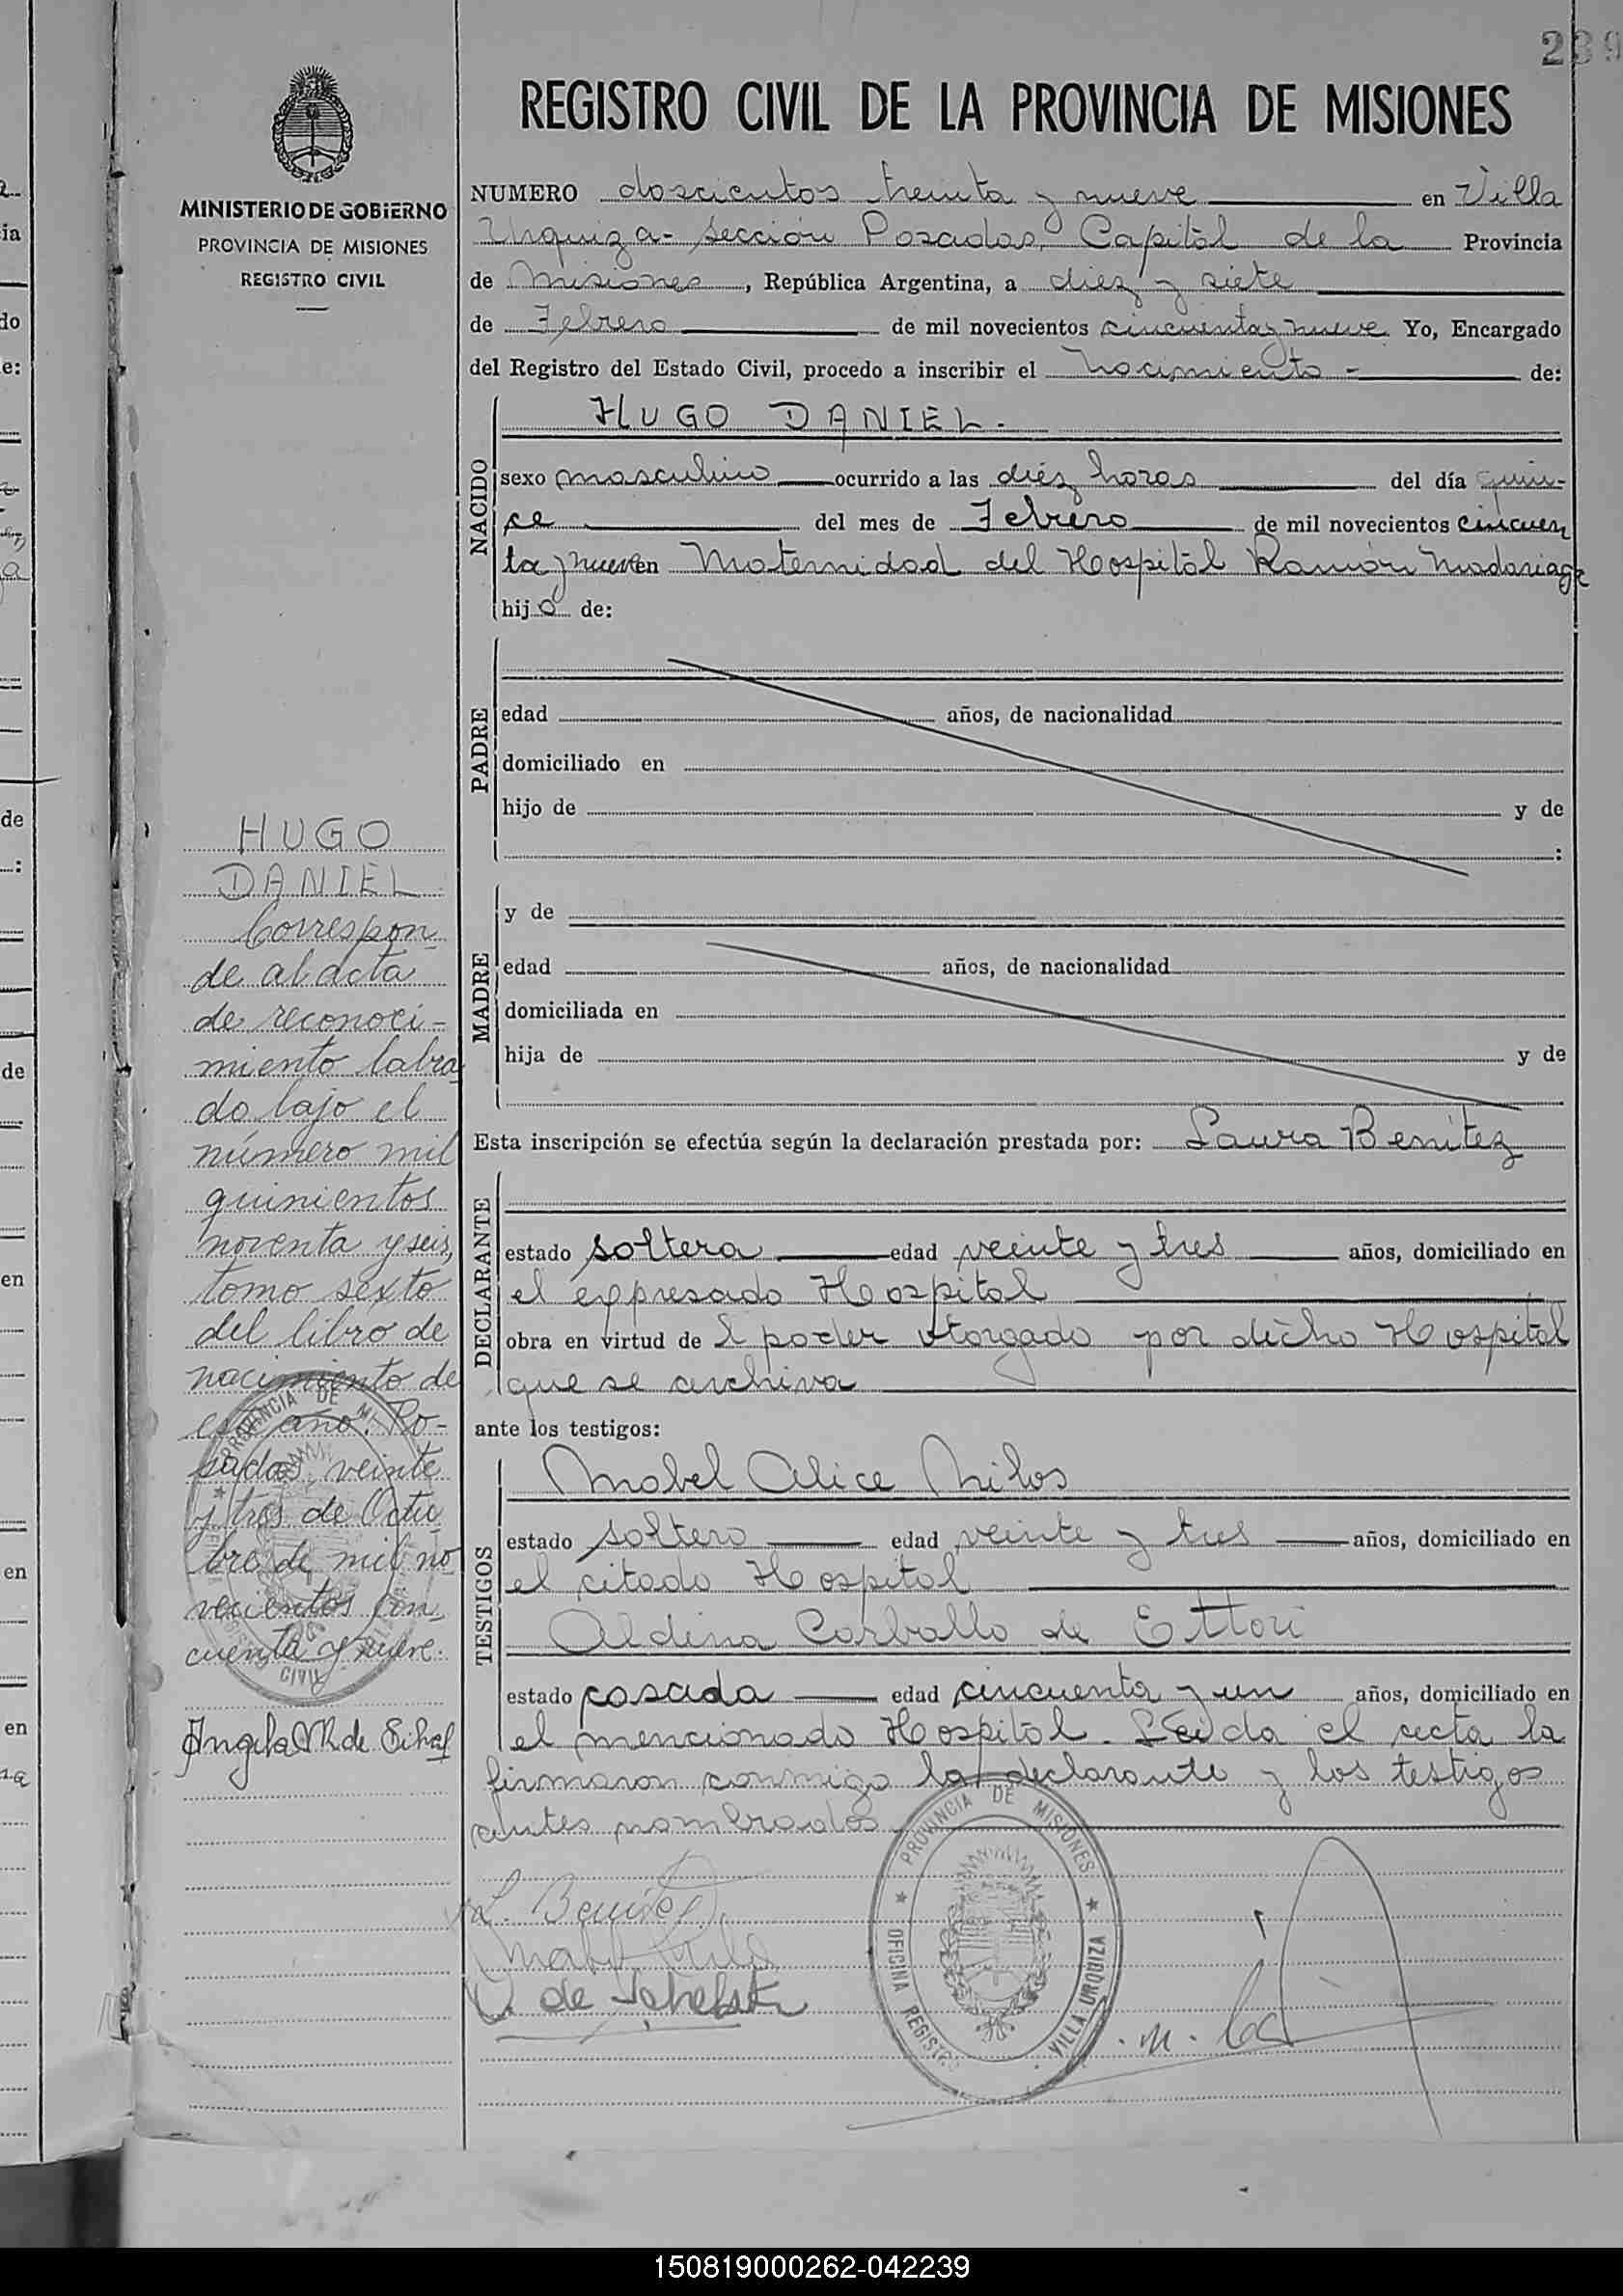 239
REGISTRO CIVIL DE LA PROVINCIA DE MISIONES
MINISTERIO DE GOBIERNO
PROVINCIA DE MISIONES
REGISTRO CIVIL
NUMERO doscientos treinta y nueve en Villa
Urquiza - Sección Posadas, Capital de la Provincia
de Misiones, República Argentina, a diez y siete
de Febrero de mil novecientos cincuenta y nueve Yo, Encargado
del Registro del Estado Civil, procedo a inscribir el nacimiento - de:
NACIDO
HUGO DANIEL.
sexo masculino ocurrido a las diéz horas del día quin-
ce del mes de Febrero de mil novecientos cincuen
ta y nueve en Maternidad del Hospital Ramón Madariaga
hijo de:
PADRE
edad años, de nacionalidad
domiciliado en
hijo de y de
:
MADRE
y de
edad años, de nacionalidad
domiciliada en
hija de y de
Esta inscripción se efectúa según la declaración prestada por: Laura Benitez
DECLARANTE
estado soltera edad veinte y tres años, domiciliado en
el expresado Hospital
obra en virtud de l poder otorgado por dicho Hospital
que se archiva
ante los testigos:
TESTIGOS
Mabel Alice Milos
estado soltero edad veinte y tres años, domiciliado en
el citado Hospital
Aldina Carballo de Ettori
estado casada edad cincuenta y un años, domiciliado en
el mencionado Hospital. Leida el acta la
firmaron conmigo la declarante y los testigos
antes nombrados
L. Benitez
PROVINCIA DE MISIONES
OFICINA REGISTRO
VILLA URQUIZA
HUGO
DANIEL.
Correspon
de al acta
de reconoci-
miento labra
do bajo el
número mil
quinientos
noventa y seis,
tomo sexto
del libro de
nacimiento de
este año. Po-
sadas, veinte
y tres de Octu
bre de mil no
vecientos cin
cuenta y nueve.
PROVINCIA DE
CIVIL
Angela M. de
150819000262-042239